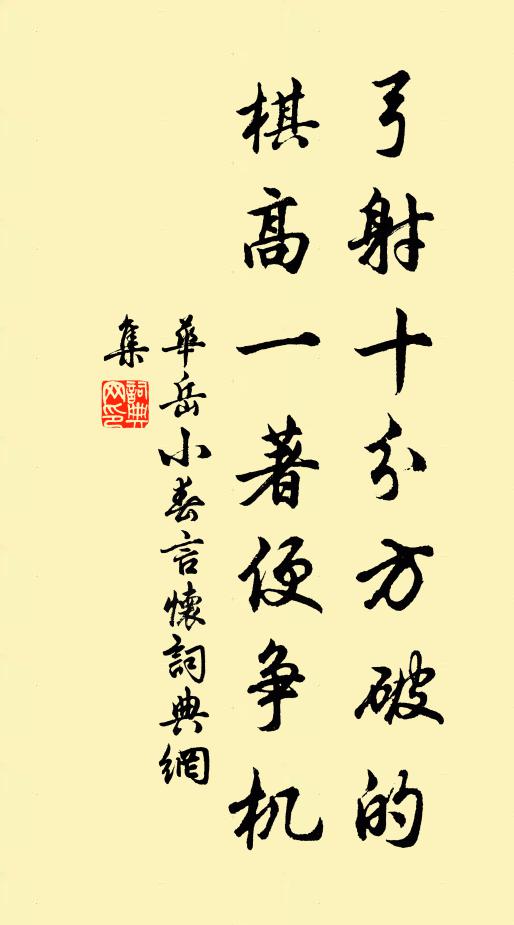 弓射十分方破的
棋高一著便争机
華岳小春言懷詞典網
集
詞典
网印